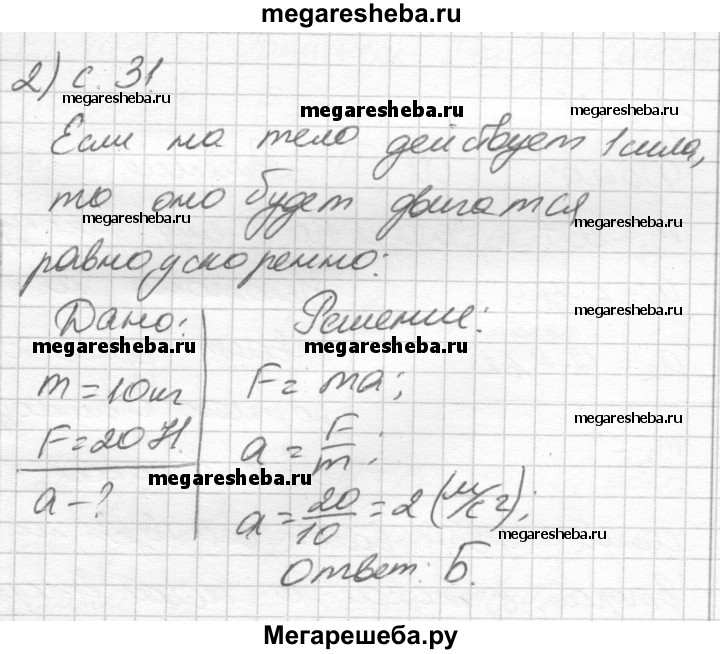 megaresheba.ru
2) с. 31
megaresheba.ru
megaresheba.ru
megaresheba.ru
Если на тело действует 1 сила,
то оно будет двигатся
megaresheba.ru
megaresheba.ru
равноускоренно:
Дано: Решение:
megaresheba.ru
megaresheba.ru
megaresheba.ru
m = 10 кг F = ma;
F = 20 Н. a = F/m;
megaresheba.ru
megaresheba.ru
a - ? a = 20/10 = 2 (м/с2);
megaresheba.ru
Ответ: Б.
Мегарешеба.ру